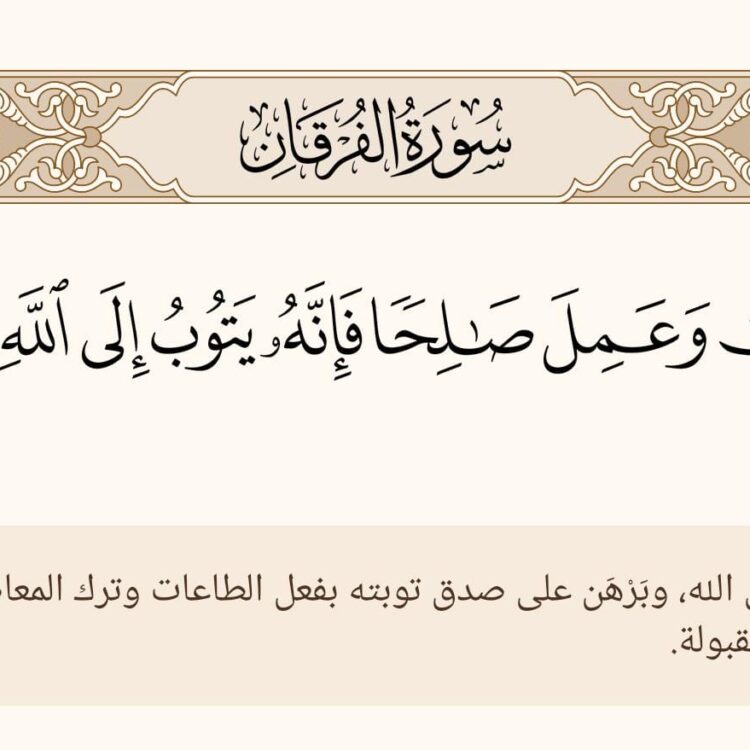 سُورَةُ الفُرْقَانِ
وَعَمِلَ صَـٰلِحًا فَإِنَّهُۥ يَتُوبُ إِلَى ٱللَّهِ
الله، وبَرْهَن على صدق توبته بفعل الطاعات وترك